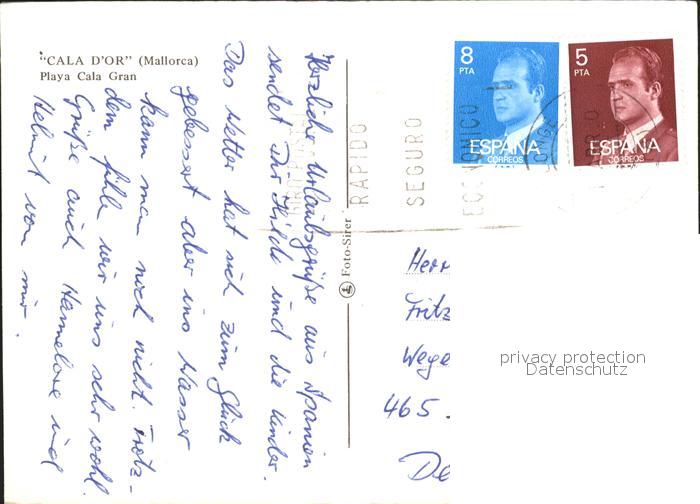 "CALA D'OR" (Mallorca)
Playa Cala Gran
Herzliche Urlaubsgrüße aus Spanien
sendet Dir Hilde und die Kinder.
Das Wetter hat sich zum Glück
gebessert aber ins Wasser
kann man noch nicht. Trotz-
dem fühle wir uns sehr wohl.
Grüße auch Hannelore und
Helmut von mir.
Foto-Sirer
RAPIDO
SEGURO
ECONOMICO
8
PTA
ESPAÑA
CORREOS
5
PTA
ESPAÑA
CORREOS
Herr
Fritz
Wege
465.
De
privacy protection
Datenschutz